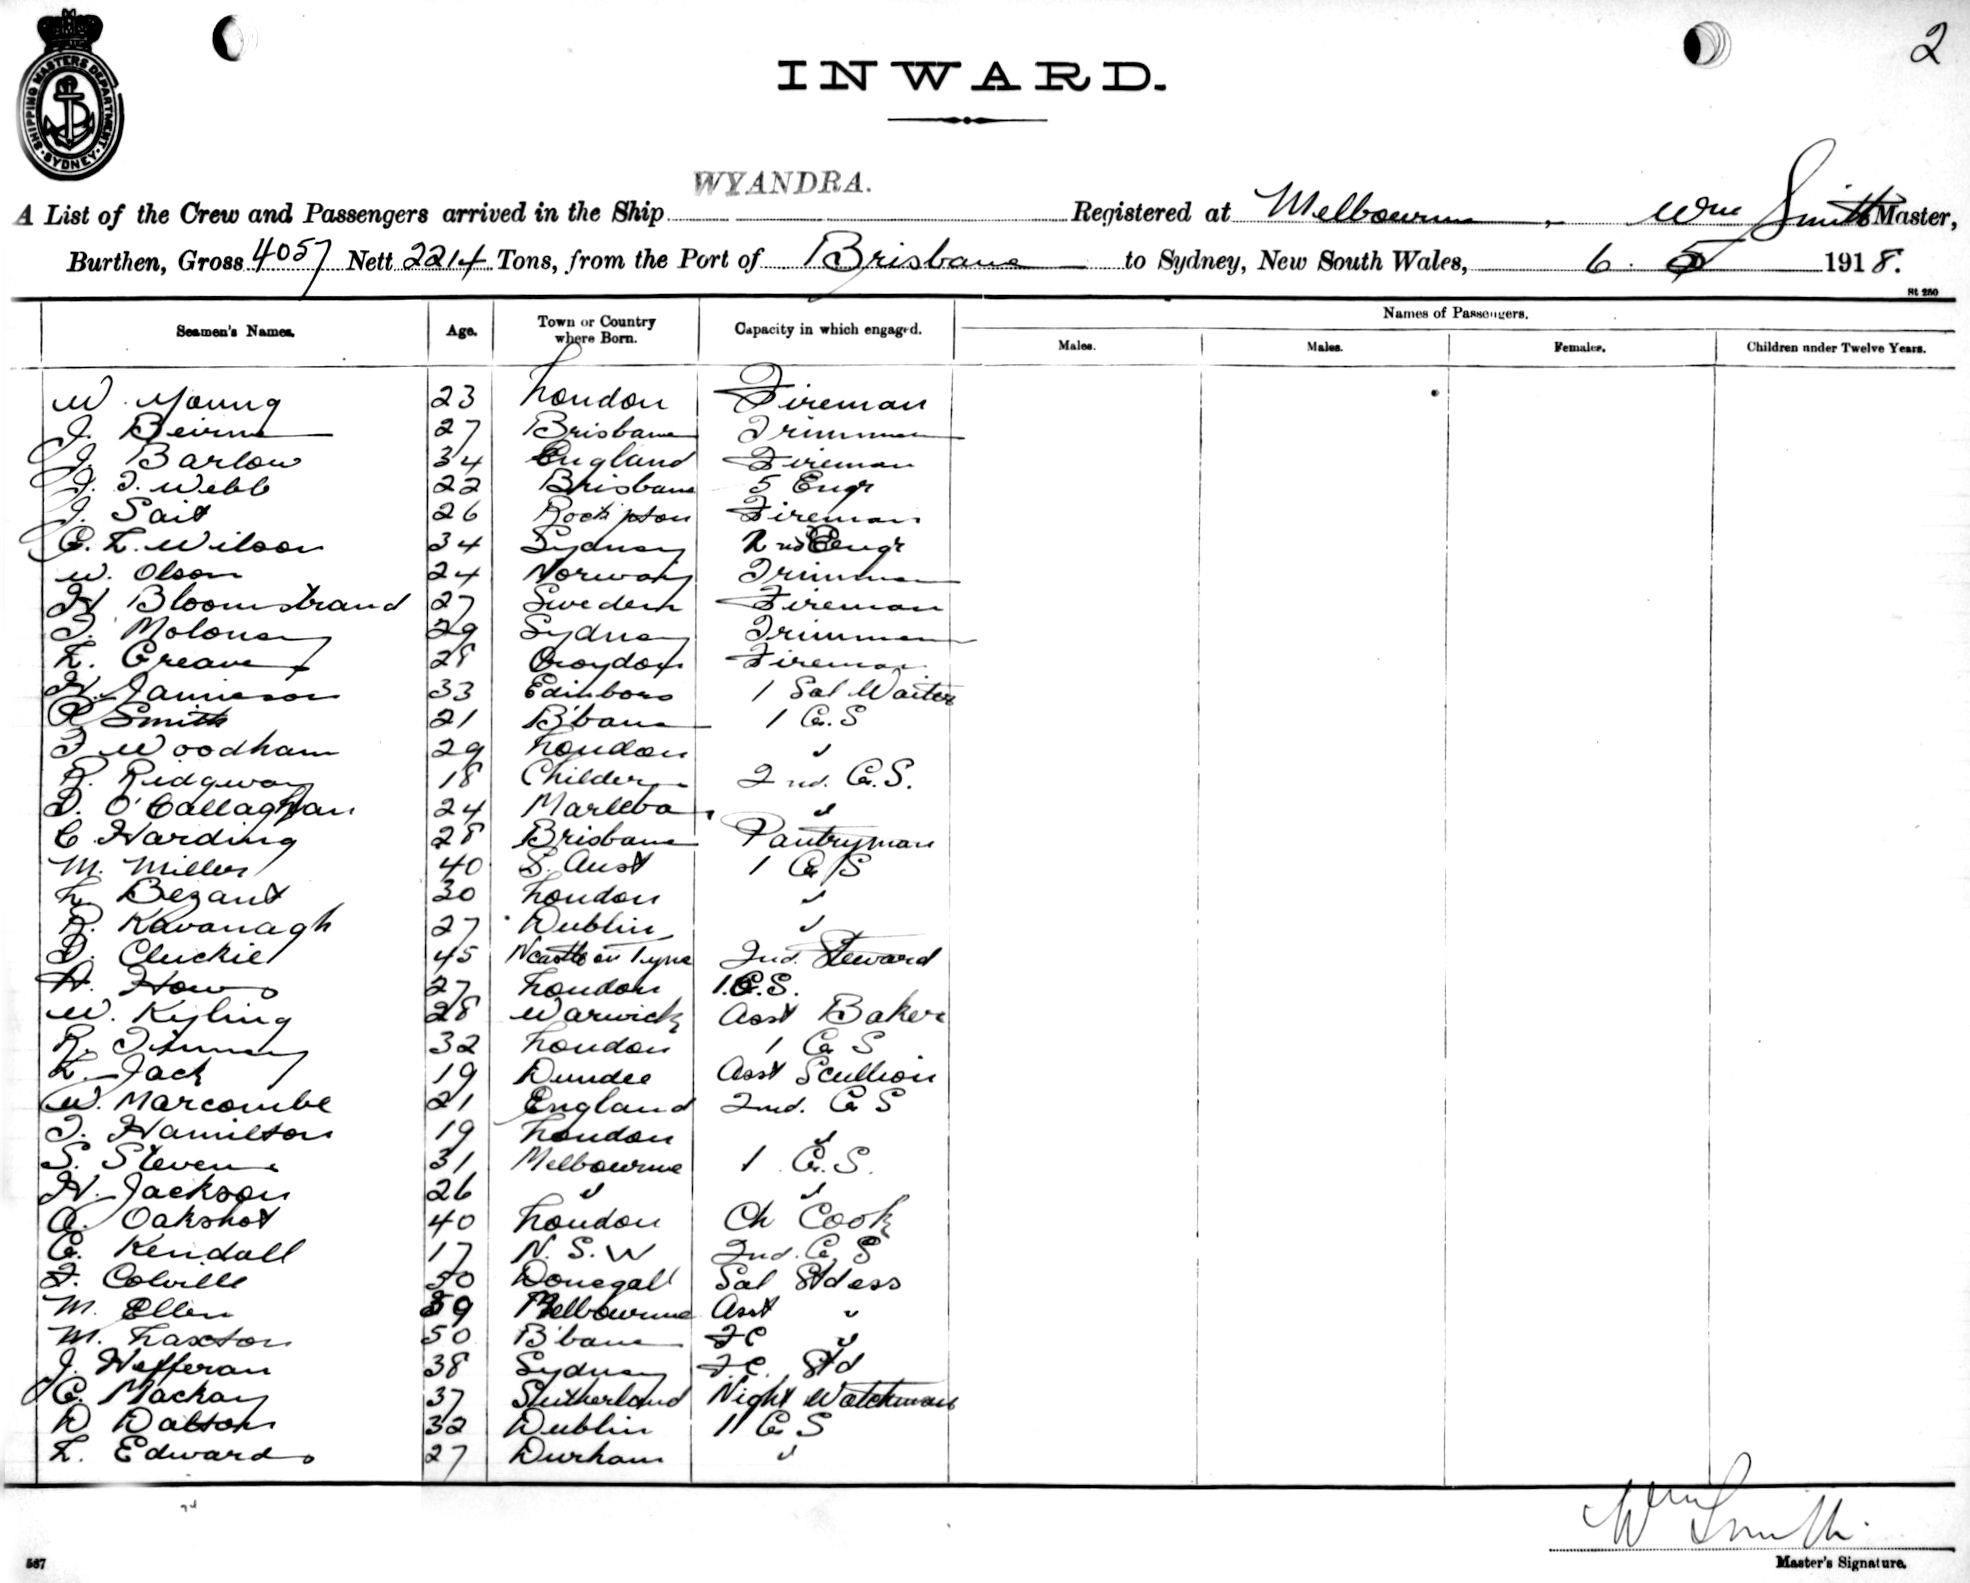 2
SHIPPING MASTERS DEPARTMENT
SYDNEY
INWARD.
WYANDRA.
A List of the Crew and Passengers arrived in the Ship Registered at Melbourne, Wm Smith Master,
Burthen, Gross 4057 Nett 2214 Tons, from the Port of Brisbane to Sydney, New South Wales, 6. 5 1918.
St 250
Seamen's Names. Age. Town or Country where Born. Capacity in which engaged. Names of Passengers.
Males. Males. Females. Children under Twelve Years.
W Young 23 London Fireman
J. Beirne 27 Brisbane Trimmer
J. Barlow 34 England Fireman
J. T. Webb 22 Brisbane 5 Engr
J. Sait 26 Fireman
C. L. Wilson 34 Sydney 2nd Engr
W. Olson 24 Norway Trimmer
H Bloomstrand 27 Sweden Fireman
T. Moloney 29 Sydney Trimmer
L. Greaves 28 Croydon Fireman
H. Jamieson 33 Edinboro 1 Sal Waiter
R Smith 21 B'bane 1 G.S
F Woodham 29 London "
R. Ridgway 18 Childers 2nd. G.S.
D. O'Callaghan 24 "
C Harding 28 Brisbane Pantryman
M. Miller 40 S. Aust 1 G S
L. Bezant 30 London "
R. Kavanagh 27 Dublin "
D. Cluckie 45 Ncastle on Tyne 2nd. Steward
H. Hows 27 London 1.G.S.
W. Kyling 28 Warwick Asst Baker
R. 32 London 1 G S
L. Jack 19 Dundee Asst Scullion
W. Marcombe 21 England 2nd. G S
T. Hamilton 19 London "
S. Stevens 31 Melbourne 1 G.S.
H. Jackson 26 " "
A. Oakshot 40 London Ch Cook
G. Kendall 17 N.S.W 2nd. G S
F. Colville 50 Donegall Sal Stdess
M. Ellen 39 Melbourne Asst "
M. Laxton 50 B'bane FC "
J. Hefferan 38 Sydney F.C. Std
G. Mackay 37 Sutherland Night Watchman
D Dalton 32 Dublin 1 G S
L. Edwards 27 Durham "
Wm Smith
Master's Signature.
567